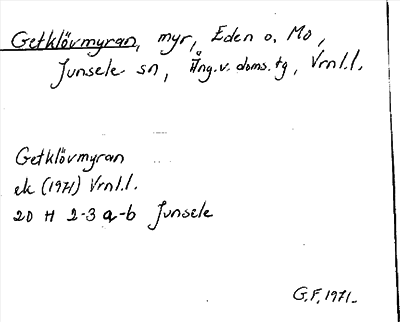 Getklövmyran, myr, Eden o. Mo,
Junsele sn, Ång.v. doms.tg, Vrnl.l.
Getklövmyran
ek (1971) Vrnl.l.
20 H 2-3 a-b Junsele
G.F. 1971.